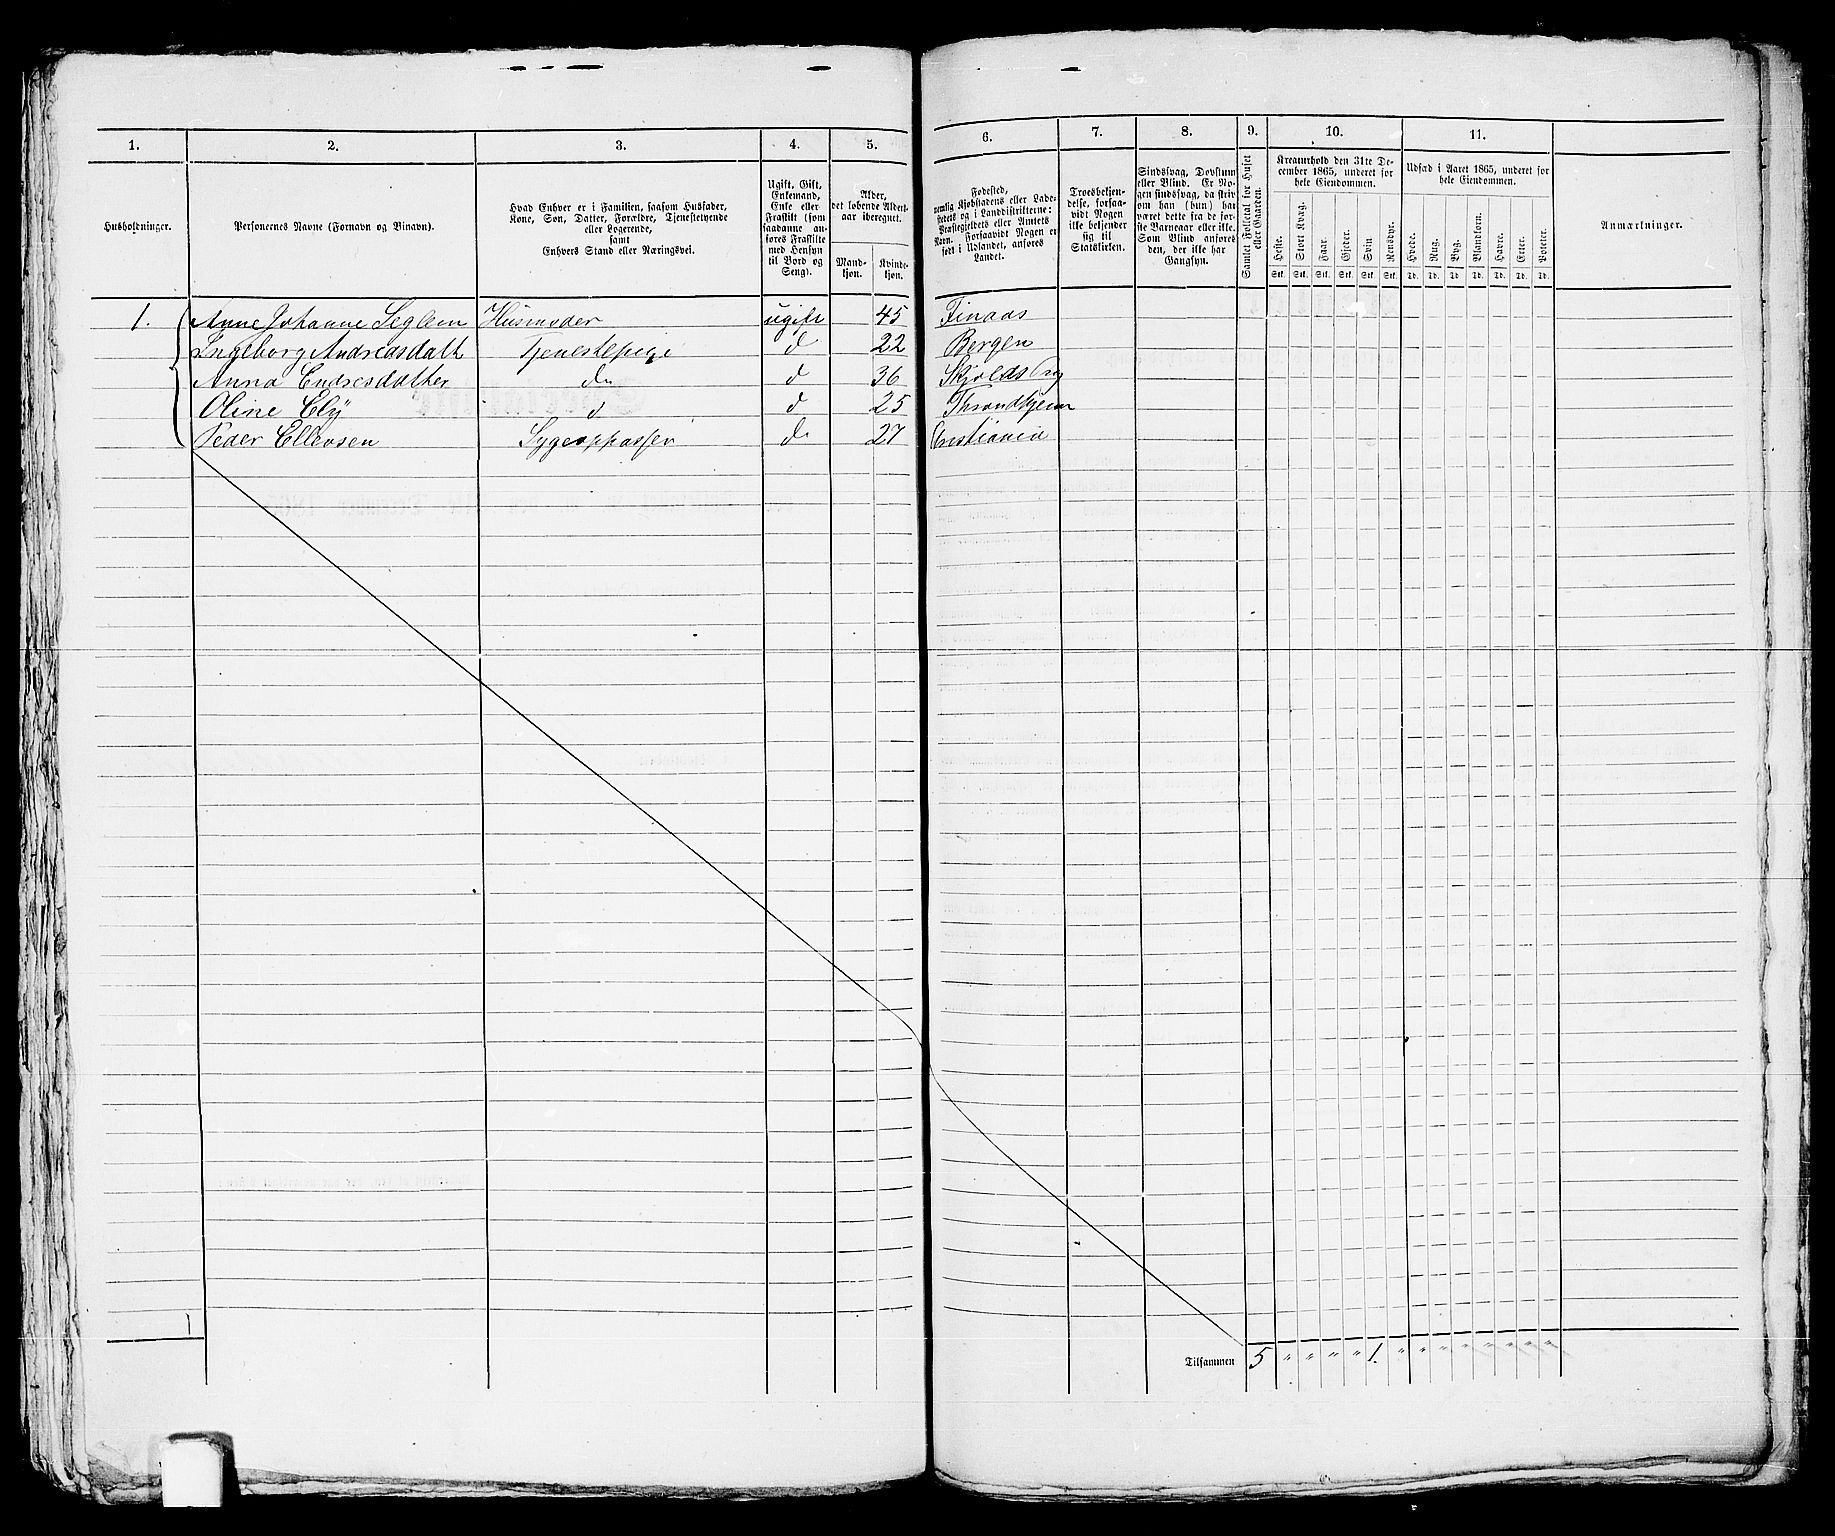 1. 2. 3. 4. 5. 6. 7. 8. 9. 10. 11.
Husholdninger.
Personernes Navne (Fornavn og Binavn).
Hvad Enhver er i Familien, saasom Husfader,
Kone, Søn, Datter, Forældre, Tjenestetyende
eller Logerende,
samt
Enhvers Stand eller Næringsvei.
Ugift, Gift,
Enkemand,
Enke eller
Fraskilt (som
saadanne an-
føres Fraskilte
med Hensyn
til Bord og
Seng).
Alder,
det løbende Alders-
aar iberegnet.
Mand-
kjøn.
Kvinde-
kjøn.
Fødested,
nemlig Kjøbstadens eller Lade-
stedets og i Landdistrikterne:
Præstegjeldets eller Amtets
Navn. Forsaavidt Nogen er
født i Udlandet, anføres
Landet.
Troesbekjen-
delse, forsaa-
vidt Nogen
ikke bekjender
sig til
Statskirken.
Sindssvag, Døvstum
eller Blind. Er No-
gen sindssvag, da skriv
om han (hun) har
været dette fra de før-
ste Barneaar eller ikke.
Som Blind anføres
den, der ikke har
Gangsyn.
Samlet Folketal for Huset
eller Gaarden.
Kreaturhold den 31te De-
cember 1865, underet for
hele Eiendommen.
Heste. Stort Kvæg. Faar. Gjeder. Svin Rensdyr.
Stk. Stk. Stk. Stk. Stk. Stk.
Udsæd i Aaret 1865, underet for
hele Eiendommen.
Hvede. Rug. Byg. Blandkorn. Havre. Erter. Poteter.
Td. Td. Td. Td. Td. Td. Td.
Anmærkninger.
1. Anne Johanne Seglem Husmoder ugift 45 Finaas
Ingeborg Andreasdatt Tjenestepige d 22 Bergen
Anna Endresdatter do d 36 Skjolds
Oline Ely d d 25 Throndhjem
Peder Ellevsen Sygeoppasser do 27 Cristiania
1
Tilsammen 5 " " " " 1. " " " " " " " "